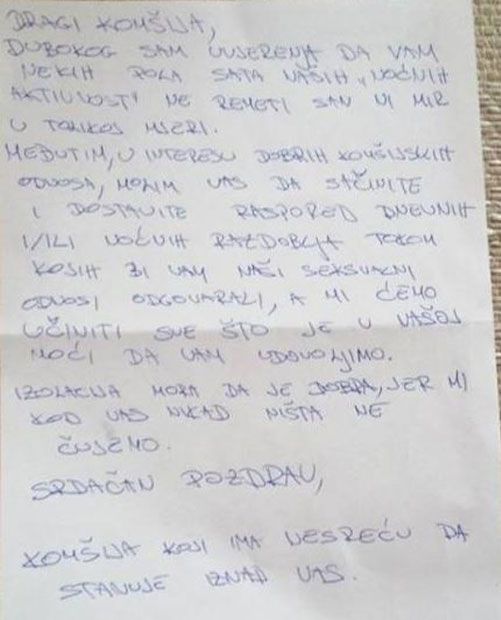 DRAGI KOMŠIJA,
DUBOKOG SAM UVJERENJA DA VAM
NEKIH POLA SATA NAŠIH "NOĆNIH
AKTIVNOSTI" NE REMETI SAN NI MIR
U TOLIKOJ MJERI.
MEĐUTIM, U INTERESU DOBRIH KOMŠIJSKIH
ODNOSA, MOLIM VAS DA SAČINITE
I DOSTAVITE RASPORED DNEVNIH
I/ILI NOĆNIH RAZDOBLJA TOKOM
KOJIH BI VAM NAŠI SEKSUALNI
ODNOSI ODGOVARALI, A MI ĆEMO
UČINITI SVE ŠTO JE U NAŠOJ
MOĆI DA VAM UDOVOLJIMO.
IZOLACIJA MORA DA JE DOBRA, JER MI
KOD VAS NIKAD NIŠTA NE
ČUJEMO.
SRDAČAN POZDRAV,
KOMŠIJA KOJI IMA NESREĆU DA
STANUJE IZNAD VAS.